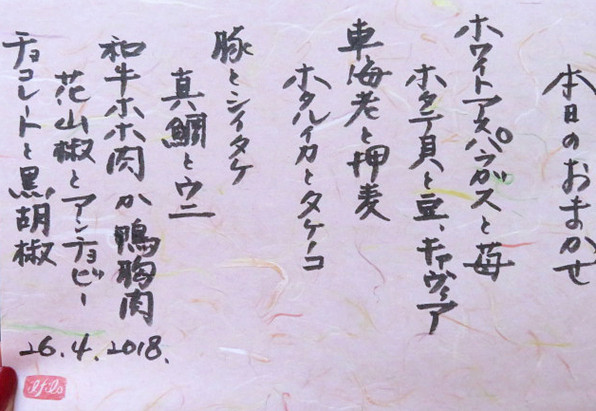 本日のおまかせ
ホワイトアスパラガスと苺
ホタテ貝と豆、キャヴィア
車海老と押麦
ホタルイカとタケノコ
豚とシイタケ
真鯛とウニ
和牛ホホ肉か鴨胸肉
花山椒とアンチョビー
チョコレートと黒胡椒
26.4.2018.